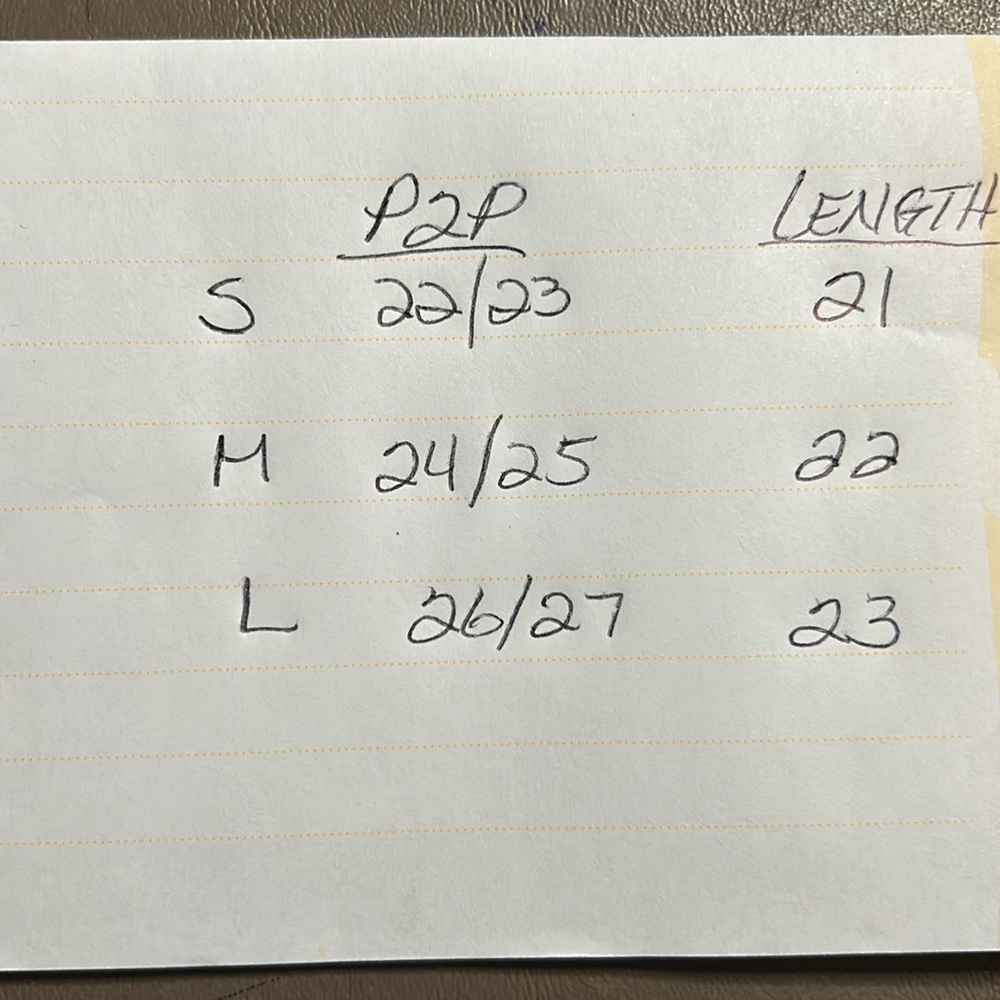 P2P LENGTH
S 22/23 21
M 24/25 22
L 26/27 23